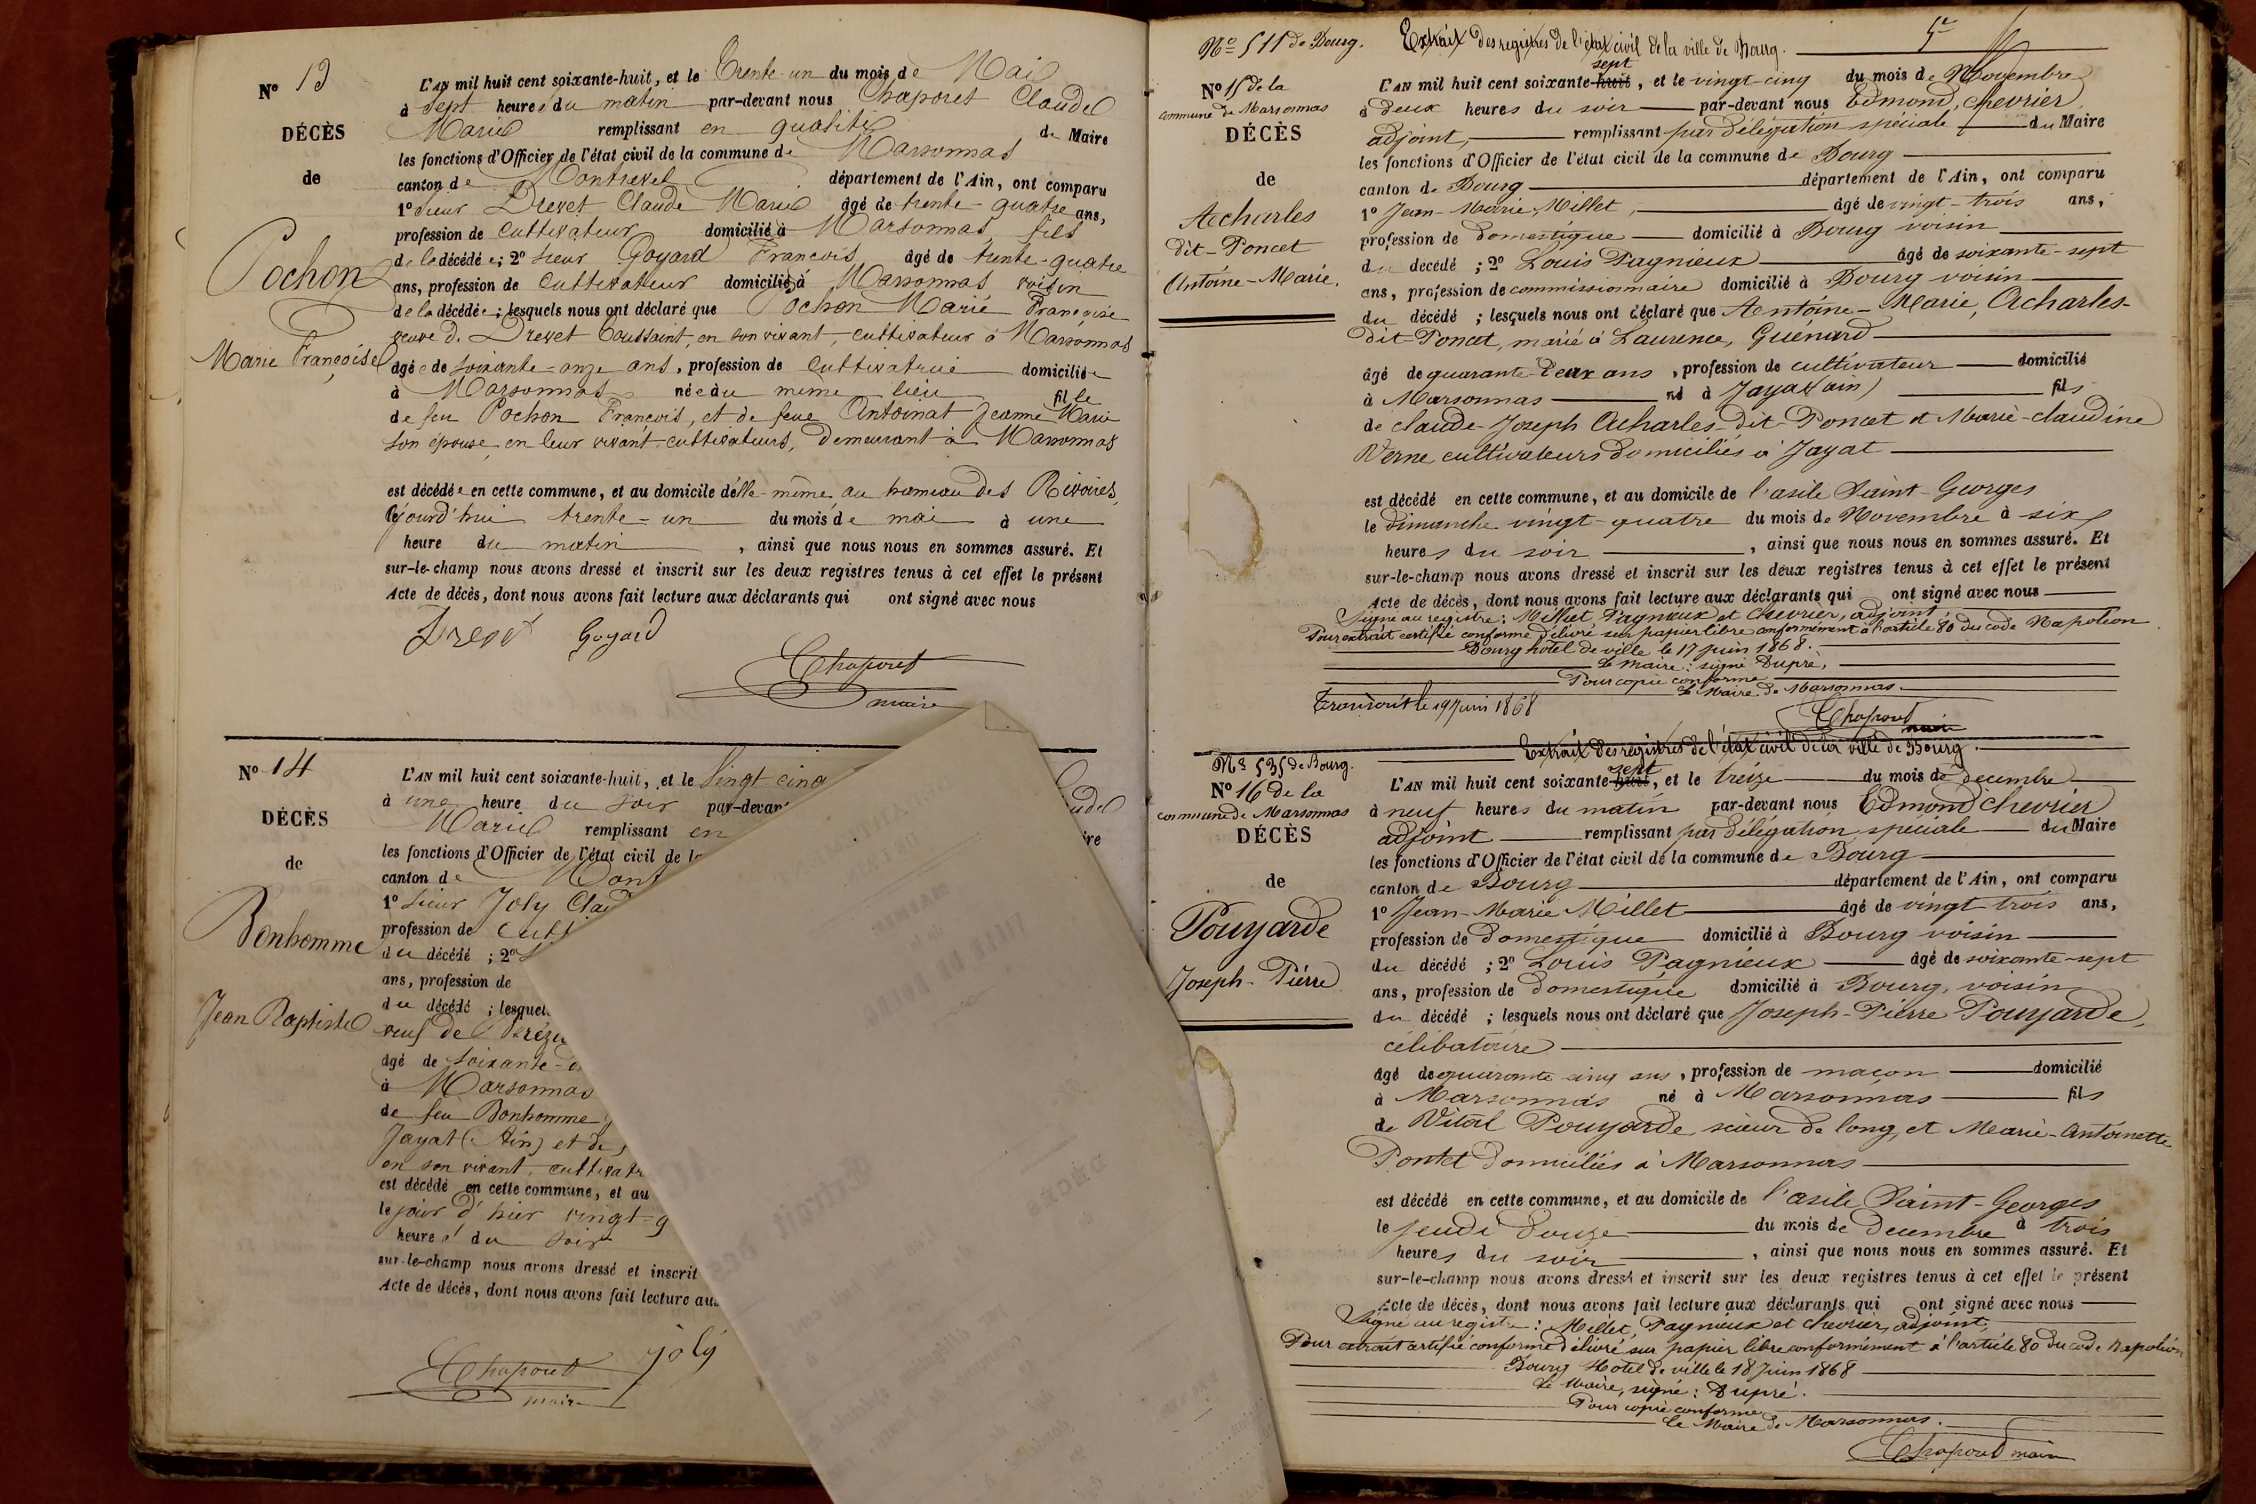 Nº 13
DÉCÈS
de
Pochon
Marie Françoise
L'AN mil huit cent soixante-huit, et le Trente-un du mois de Mai
à sept heures du matin par-devant nous Chaporet Claude
Marie remplissant en qualité de Maire
les fonctions d'Officier de l'état civil de la commune de Marsonnas
canton de Montrevel département de l'Ain, ont comparu
1º Sieur Drevet Claude Marie âgé de trente-quatre ans,
profession de Cultivateur domicilié à Marsonnas, fils
de la décédée; 2º Sieur Goyard François âgé de trente-quatre
ans, profession de Cultivateur domicilié à Marsonnas voisin
de la décédée; lesquels nous ont déclaré que Pochon Marie Françoise
veuve de Drevet Toussaint, en son vivant, cultivateur à Marsonnas
âgée de soixante-onze ans, profession de Cultivatrice domiciliée
à Marsonnas née au même lieu fille
de feu Pochon François, et de feue Antoinat Jeanne Marie
son épouse, en leur vivant cultivateurs, demeurant à Marsonnas
est décédée en cette commune, et au domicile d'elle-même au hameau des Rivoires,
aujourd'hui trente-un du mois de mai à une
heure du matin, ainsi que nous nous en sommes assuré. Et
sur-le-champ nous avons dressé et inscrit sur les deux registres tenus à cet effet le présent
Acte de décès, dont nous avons fait lecture aux déclarants qui ont signé avec nous
Drevet Goyard
Chaporet
maire
Nº 14
DÉCÈS
de
Bonhomme
Jean Baptiste
L'AN mil huit cent soixante-huit, et le Vingt cinq
à une heure du soir par-devan
Marie remplissant en
les fonctions d'Officier de l'état civil de la
canton de Mont
1º Sieur Joly Clau
profession de Cult
du décédé; 2º
ans, profession de
du décédé; lesquel
veuf de
âgé de soixante-
à Marsonnas
de feu Bonhomme
Jayat (Ain) et de
en son vivant, cultivat
est décédé en cette commune, et au
le jour d'hier vingt-q
heures du soir
sur-le-champ nous avons dressé et inscrit
Acte de décès, dont nous avons fait lecture aux
Chaporet Joly
maire
Nº 511 de Bourg. Extrait des registres de l'état civil de la ville de Bourg.
Nº 15 de la
commune de Marsonnas
DÉCÈS
de
Acharles
dit-Poncet
Antoine-Marie.
L'AN mil huit cent soixante-huit sept, et le vingt-cinq du mois de Novembre
à deux heures du soir par-devant nous Edmond, Chevrier
adjoint, remplissant par délégation spéciale du Maire
les fonctions d'Officier de l'état civil de la commune de Bourg
canton de Bourg département de l'Ain, ont comparu
1º Jean-Marie Millet, âgé de vingt-trois ans,
profession de domestique domicilié à Bourg voisin
du décédé; 2º Louis Pagnieux âgé de soixante-sept
ans, profession de commissionnaire domicilié à Bourg voisin
du décédé; lesquels nous ont déclaré que Antoine-Marie, Acharles-
dit-Poncet, marié à Laurence, Guénard
âgé de quarante-deux ans, profession de cultivateur domicilié
à Marsonnas né à Jayat (ain) fils
de Claude-Joseph Acharles-dit-Poncet et Marie-Claudine
Verne cultivateurs domiciliés à Jayat
est décédé en cette commune, et au domicile de l'asile Saint-Georges
le dimanche vingt-quatre du mois de Novembre à six
heures du soir, ainsi que nous nous en sommes assuré. Et
sur-le-champ nous avons dressé et inscrit sur les deux registres tenus à cet effet le présent
Acte de décès, dont nous avons fait lecture aux déclarants qui ont signé avec nous
Signé au registre: Millet, Pagnieux et Chevrier, adjoint
Pour extrait certifié conforme délivré sur papier libre conformément à l'article 80 du code Napoléon
Bourg hôtel de ville le 17 juin 1868.
Le Maire: signé Dupré,
Pour copie conforme
Le Maire de Marsonnas
Transcrit le 19 Juin 1868
Chaporet
maire
Extrait des registres de l'état civil de la ville de Bourg.
Nº 535 de Bourg.
Nº 16 de la
commune de Marsonnas
DÉCÈS
de
Pouyarde
Joseph-Pierre
L'AN mil huit cent soixante-huit sept, et le treize du mois de decembre
à neuf heures du matin par-devant nous Edmond Chevrier
adjoint remplissant par délégation spéciale du Maire
les fonctions d'Officier de l'état civil de la commune de Bourg
canton de Bourg département de l'Ain, ont comparu
1º Jean-Marie Millet âgé de vingt trois ans,
profession de domestique domicilié à Bourg voisin
du décédé; 2º Louis Pagnieux âgé de soixante-sept
ans, profession de domestique domicilié à Bourg, voisin
du décédé; lesquels nous ont déclaré que Joseph-Pierre Pouyarde,
célibataire
âgé de quarante cinq ans, profession de maçon domicilié
à Marsonnas né à Marsonnas fils
de Vital Pouyarde, scieur de long, et Marie-Antoinette
Pontet domiciliés à Marsonnas
est décédé en cette commune, et au domicile de l'asile Saint-Georges
le jeudi douze du mois de decembre à trois
heures du soir, ainsi que nous nous en sommes assuré. Et
sur-le-champ nous avons dressé et inscrit sur les deux registres tenus à cet effet le présent
Acte de décès, dont nous avons fait lecture aux déclarants qui ont signé avec nous
Signé au registre: Millet, Pagnieux et Chevrier, adjoint,
Pour extrait certifié conforme délivré sur papier libre conformément à l'article 80 du code Napoléon
Bourg Hôtel de ville le 18 Juin 1868
Le Maire, signé: Dupré.
Pour copie conforme
Le Maire de Marsonnas.
Chaporet maire